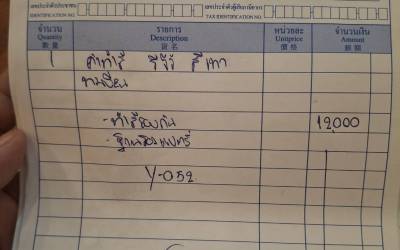 เลขประจำตัวประชาชน เลขประจำตัวผู้เสียภาษีอากร
IDENTIFICATION NO. TAX IDENTIFICATION NO.
จำนวน รายการ หน่วยละ จำนวนเงิน
Quantity Description Unitprice Amount
數量 貨名 價格 銀額
1 ค่าทำสี สีเทา
- ทำสีรอบคัน 12,000
Y-052